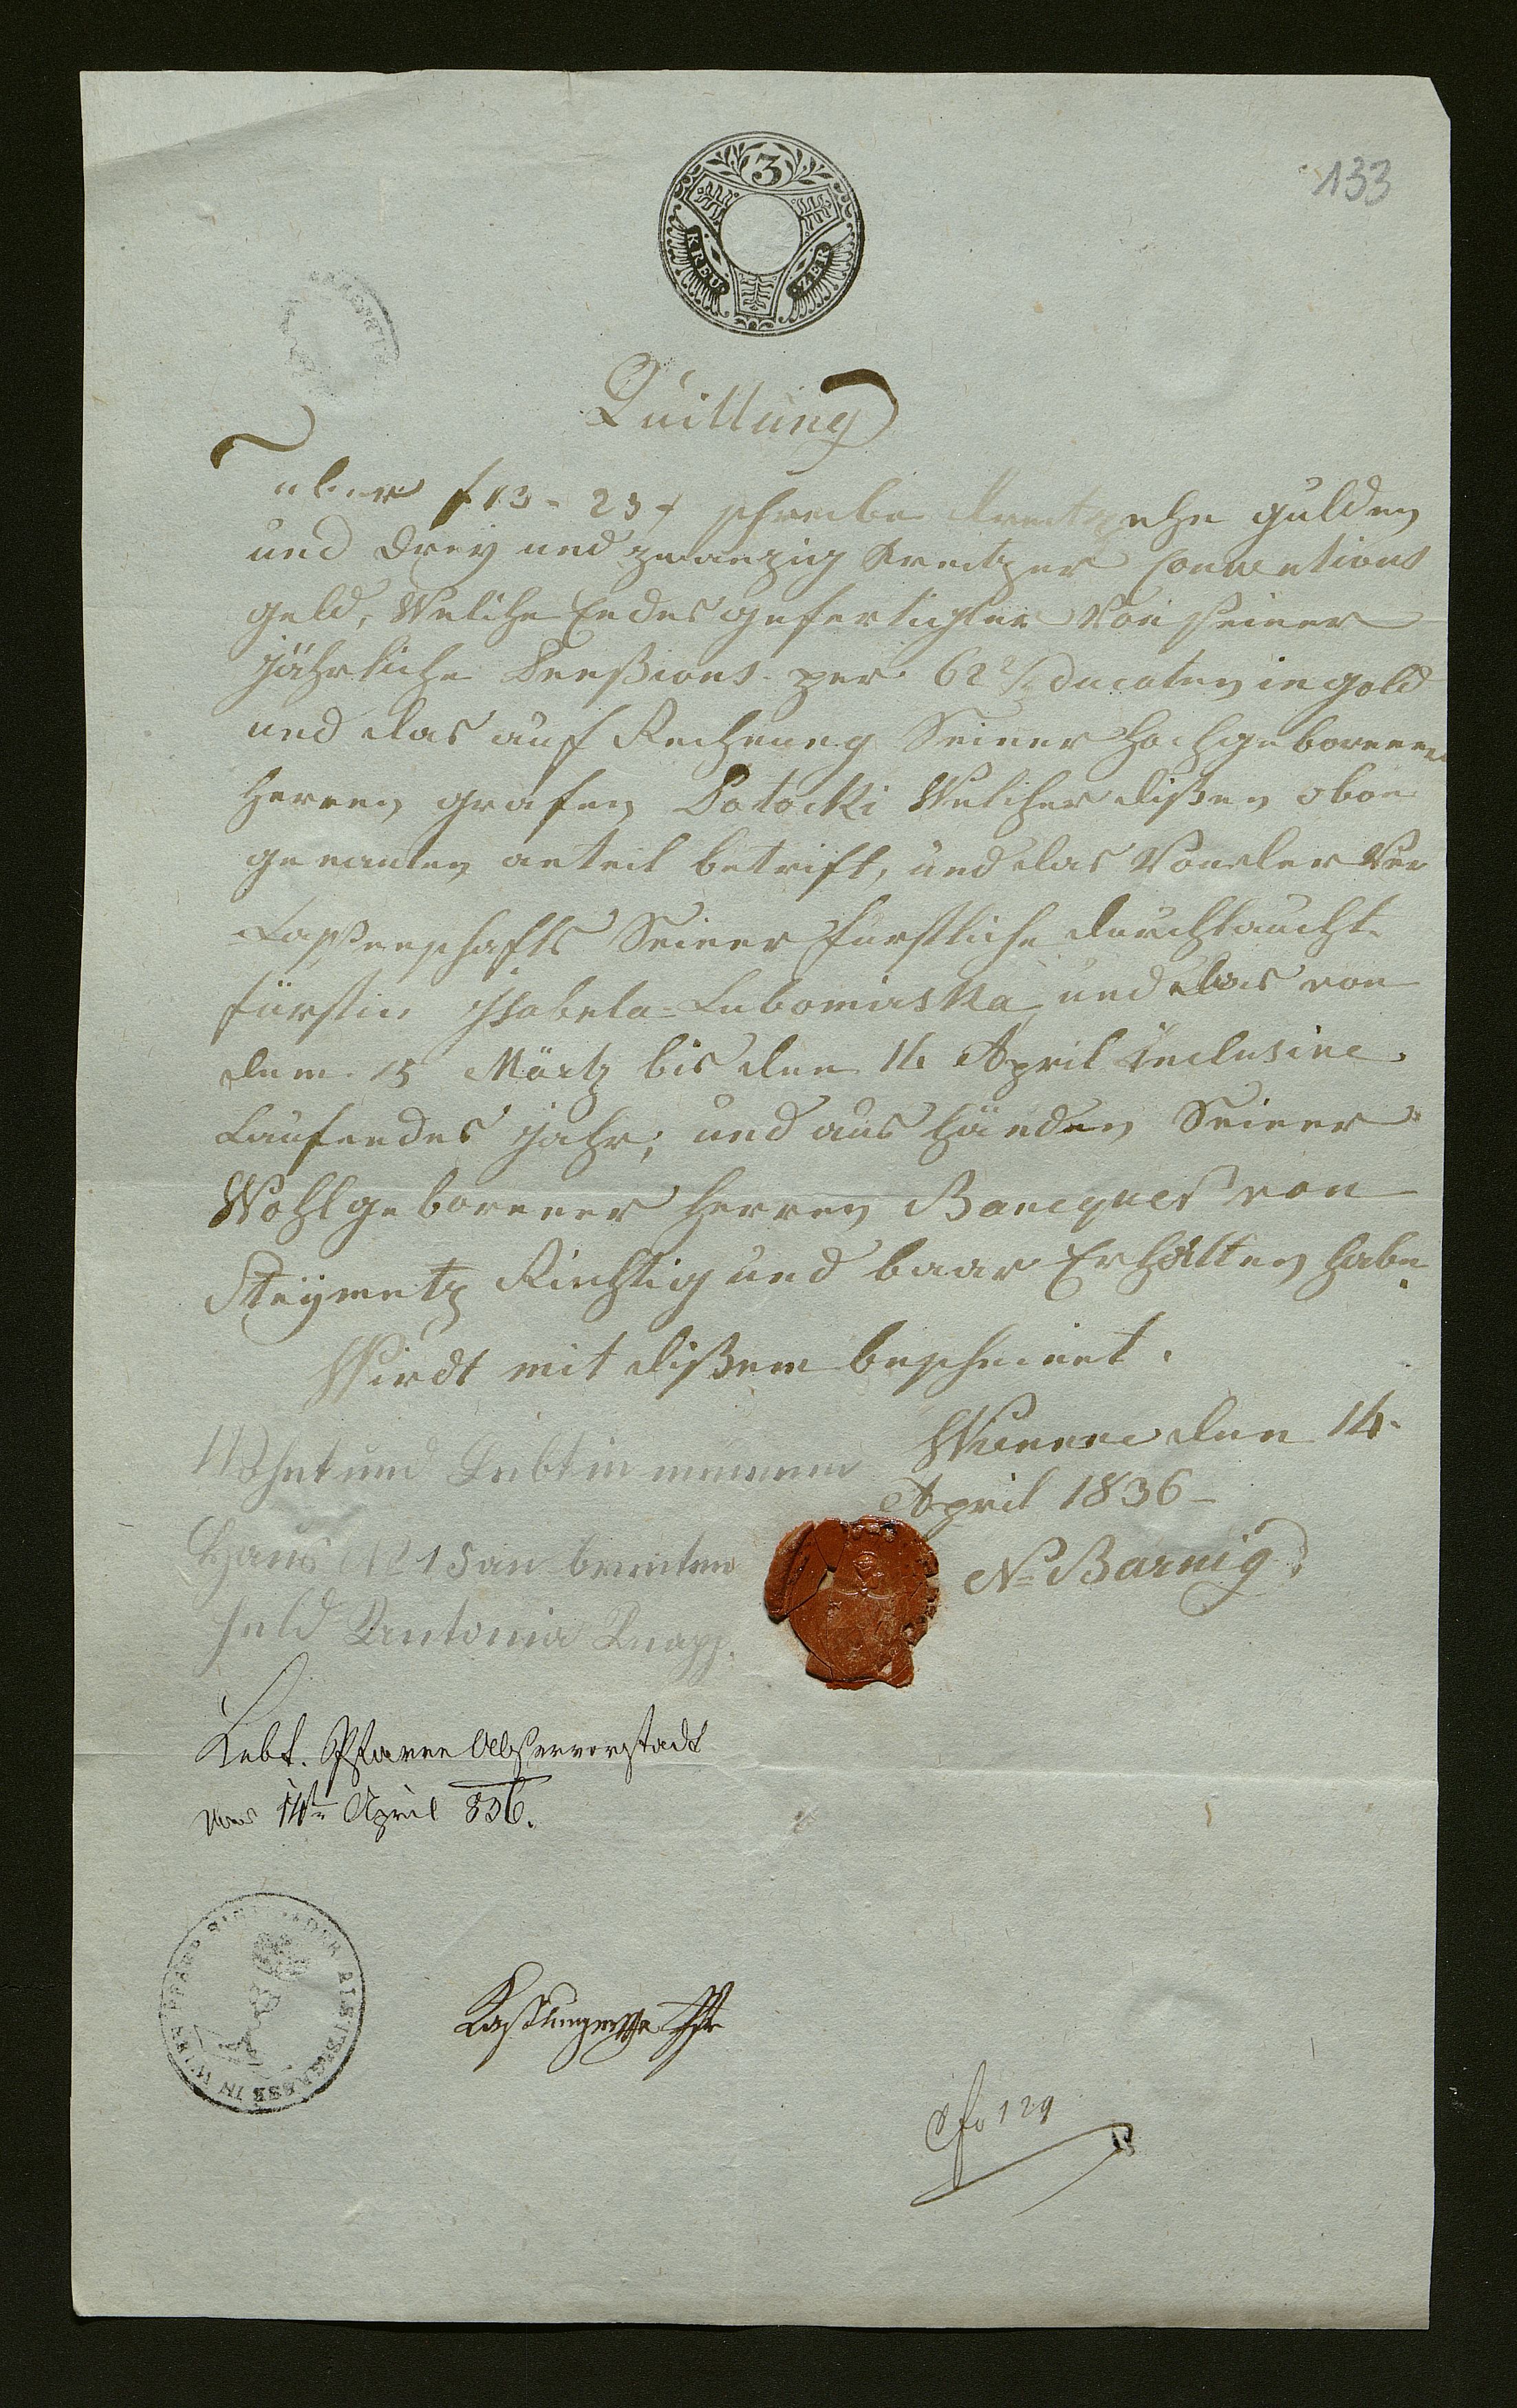 133
3
KREU ZER
Quittung
über f 13 - 23 x schreibe dreitzehn gulden
und Drey und zwanzig Kreitzer Conventions
geld, Welche Endesgefertigter Von seiner
jährliche Penßions per 62 2/ ducaten in gold
und das auf Rechnung Seiner Hochgeborenen
Herren grafen Potocki Welcher dißen oben
genanten anteil betrift, und das Von der Ver
Laßenschafts Seiner fürstliche durchlaucht
fürstin Isabela=Lubomirska und das von
dem 15 Märtz bis den 14 April Inclusive
Laufendes jahr, und aus Händen Seiner
Wohlgeborener Herren Banquer von
Steymetz Richtig und baar Erhalten habe
Wirdt mit dißem bescheinet.
Wienn den 14
April 1836
N Barnig
Wohnt und Lebt in meinem
Haus No 15 am breiten
feld Antonia Knapp.
Lebt. Pfarre Alservorstadt
14tn April 836.
PFARR ALSERGASSE IN WIEN
Pfr
129